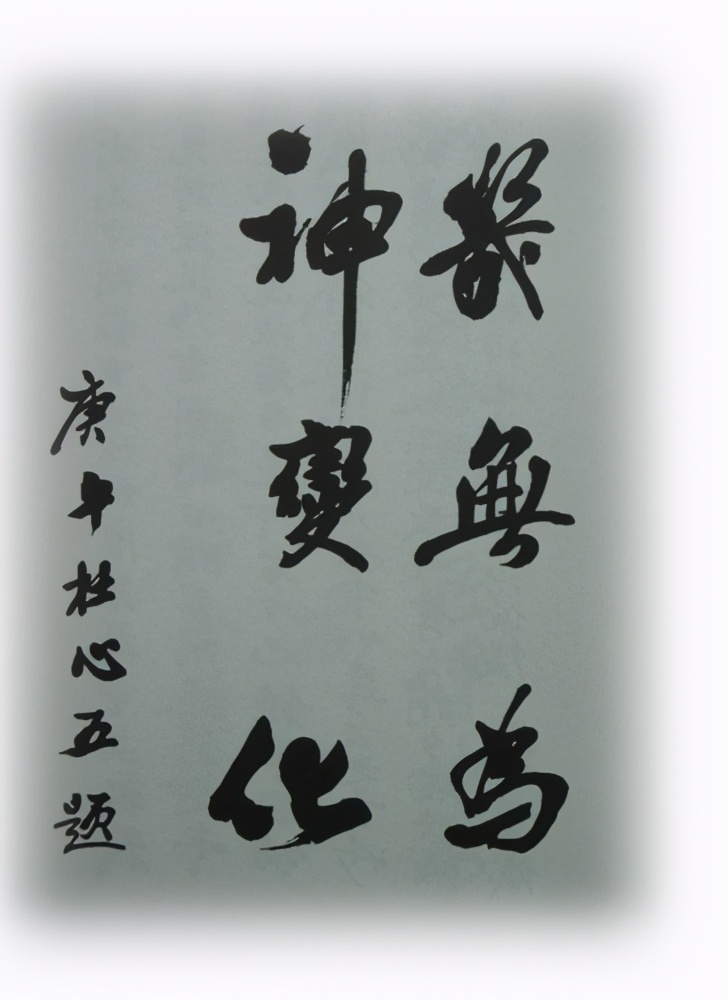 無為
神變化
庚午杜心五题